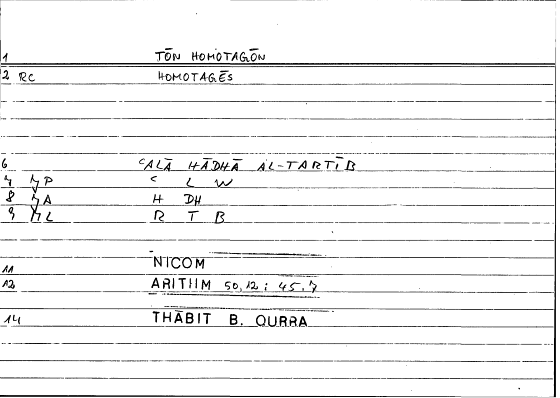 1 TŌN HOMOTAGŌN
2 RC HOMOTAGĒS
6 ʿALĀ HĀDHĀ AL-TARTĪB
7 P ʿ L W
8 A H DH
9 L R T B
11 NICOM
12 ARITHM 50,12 : 45.7
14 THĀBIT B. QURRA